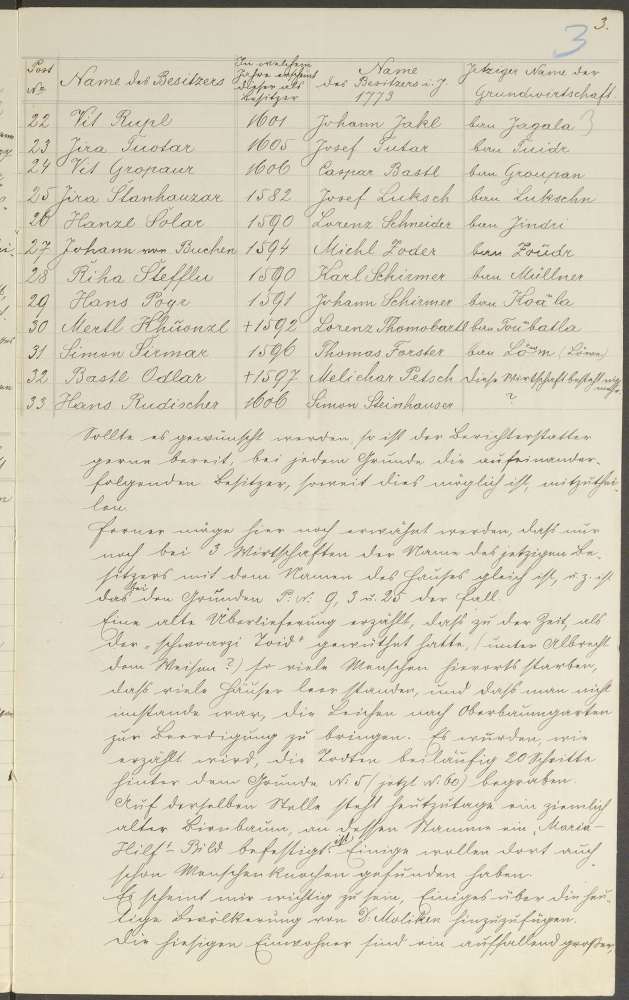 3.
3
Post No. Name des Besitzers In welchem Jahre erscheint dieser als Besitzer Name des Besitzers i. J. 1773 Jetziger Name der Grundwirtschaft
22 Vit Rupl 1601 Johann Jakl ban Jagala
23 Jira Tuotar 1605 Josef Tutar ban Tuidr
24 Vit Gropaur 1606 Caspar Bastl ban Groupan
25 Jira Stanhauzar 1582 Josef Luksch ban Lukschn
26 Hanzl Solar 1590 Lorenz Schneider ban Jindri
27 Johann von Buchen 1594 Michl Zoder ban Zoudr
28 Riha Stefflu 1590 Karl Schirmer ban Müllner
29 Hans Pogr 1591 Johann Schirmer ban Koala
30 Mertl Khuonzl +1592 Lorenz Thomobartl ban Toubatla
31 Simon Sirmar 1596 Thomas Forster ban Löwm (Löwe)
32 Bastl Odlar +1597 Melichar Petsch diese Wirtschaft besteht nicht mehr
33 Hans Rudischer 1606 Simon Steinhauser ?
Sollte es gewünscht werden, so ist der Berichterstatter
gerne bereit, bei jedem Grunde die aufeinander-
folgenden Besitzer, soweit dies möglich ist, mitzuthei-
len.
Ferner möge hier noch erwähnt werden, daß nur
noch bei 3 Wirtschaften der Name des jetzigen Be-
sitzers mit dem Namen des Hauses gleich ist, u. z. ist
das bei den Gründen P. N. 9, 3 u. 25 der Fall.
Eine alte Überlieferung erzählt, daß zu der Zeit, als
der "schwoarzi Toid" gewüthet hatte, (unter Albrecht
dem Weisen?) so viele Menschen hierorts starben,
daß viele Häuser leer standen, und daß man nicht
imstande war, die Leichen nach Oberbaumgarten
zur Beerdigung zu bringen. Es wurden, wie
erzählt wird, die Todten beiläufig 20 Schritte
hinter dem Grunde N: 5 (jetzt N: 60) begraben.
Auf derselben Stelle steht heutzutage ein ziemlich
alter Birnbaum, an dessen Stamme ein "Maria-
Hilf"- Bild befestigt ist. Einige wollen dort auch
schon Menschenknochen gefunden haben.
Es scheint mir wichtig zu sein, Einiges über die heu-
tige Bevölkerung von D: Moliken hinzuzufügen.
Die hiesigen Einwohner sind ein auffallend großer,